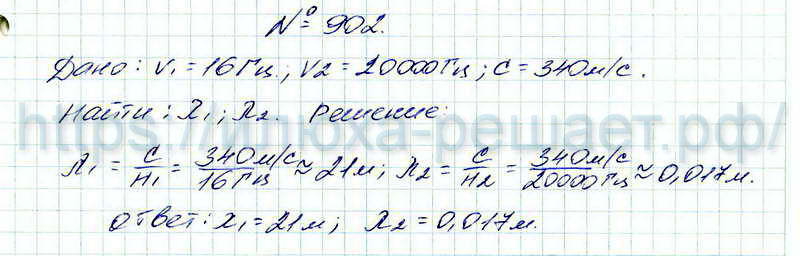 № 902.
Дано: ν₁ = 16 Гц; ν2 = 20000 Гц; c = 340 м/с.
Найти: λ₁; λ₂. Решение:
https://илюха-решает.рф/
λ₁ = c/H₁ = 340 м/с / 16 Гц ≈ 21 м; λ₂ = c/H₂ = 340 м/с / 20000 Гц ≈ 0,017 м.
Ответ: λ₁ = 21 м; λ₂ = 0,017 м.